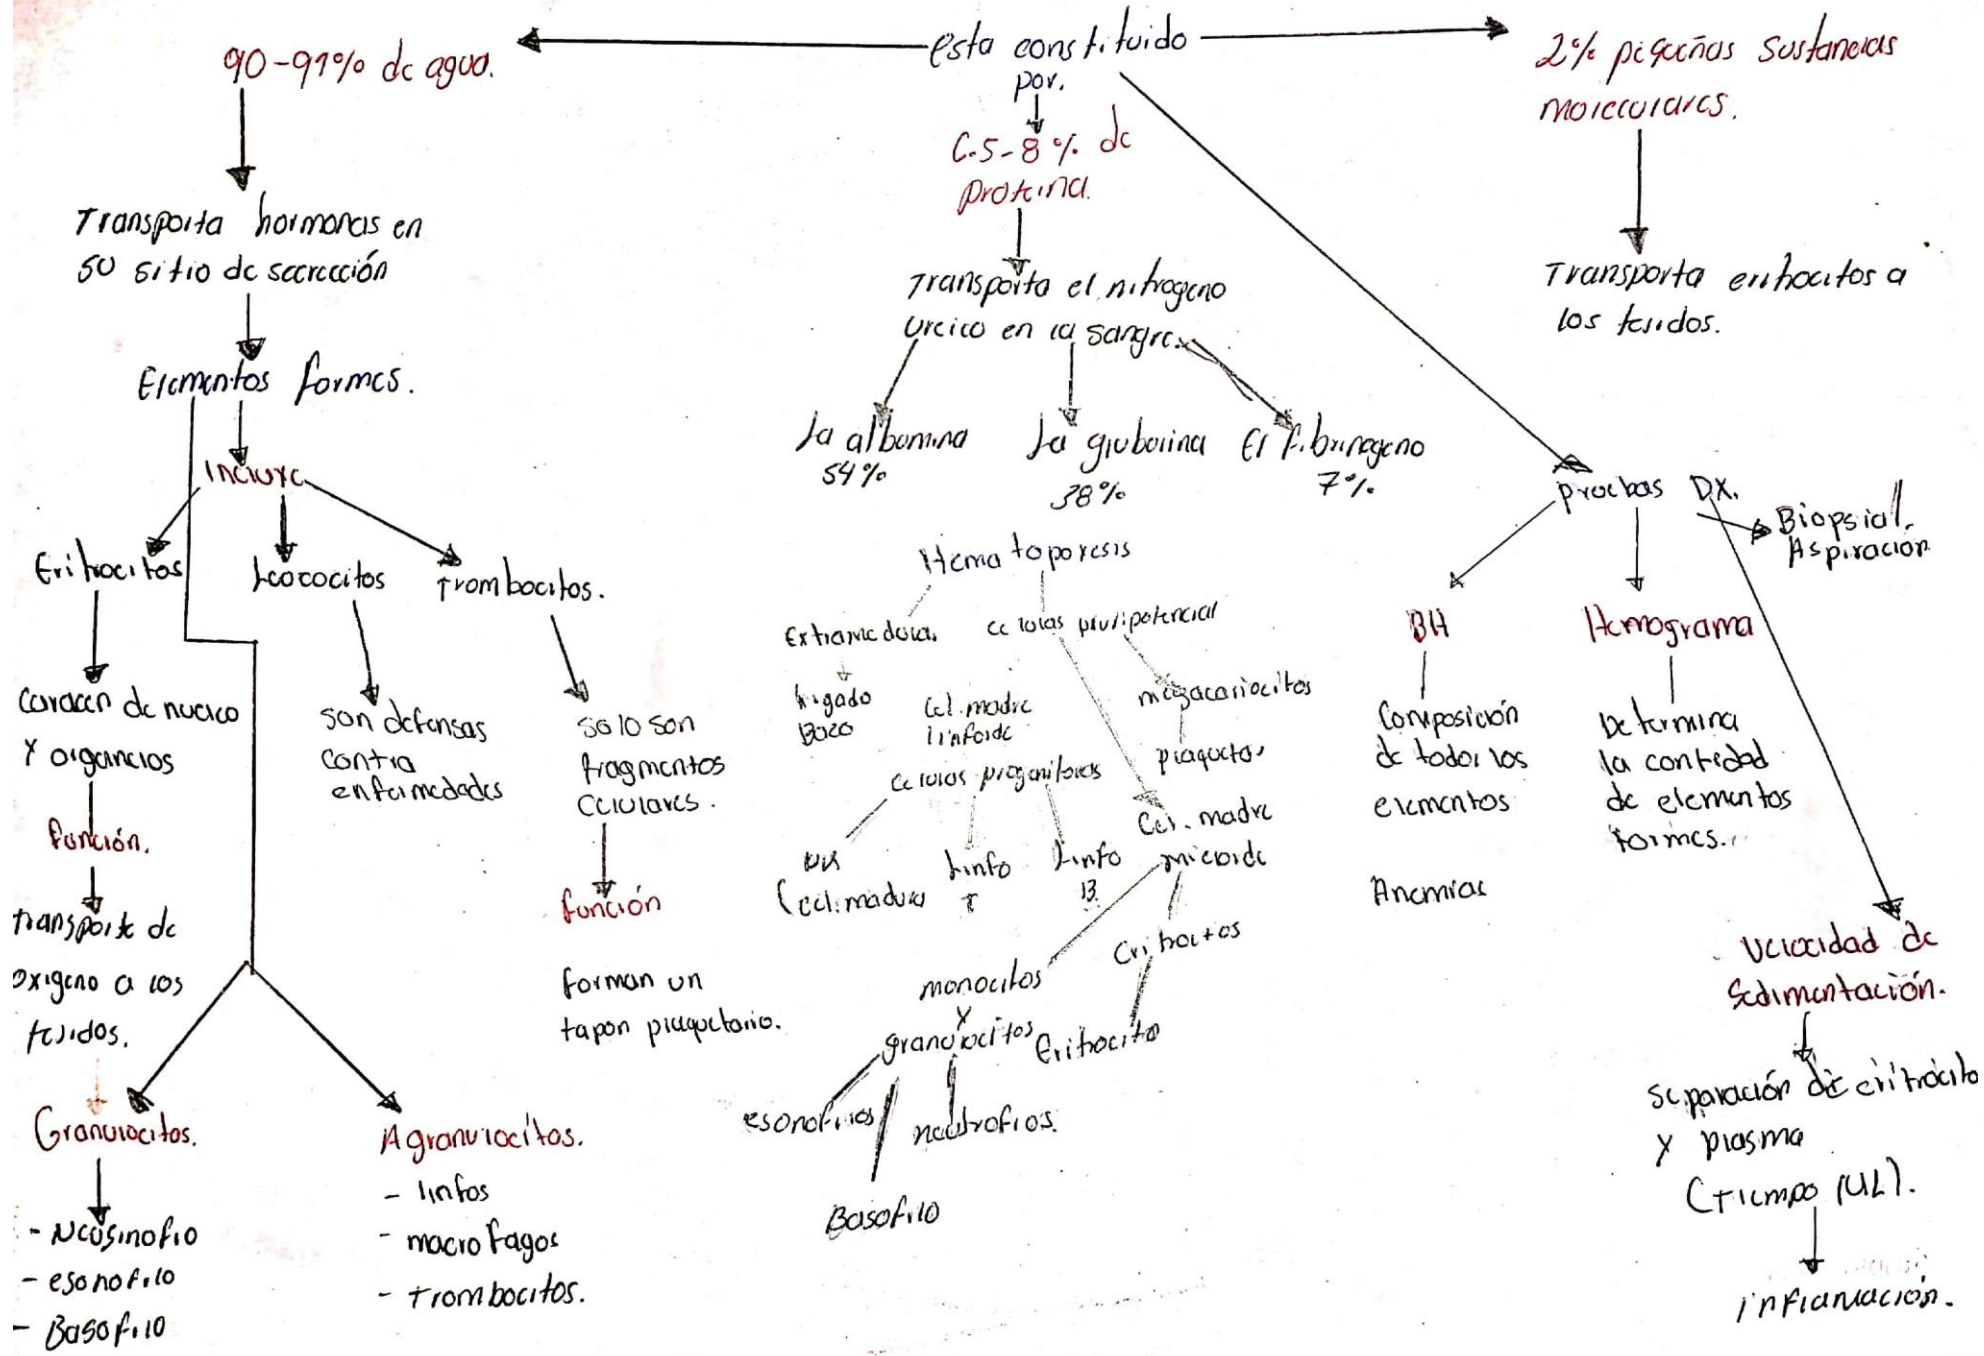 esta constituido
por.
90-91% de agua.
Transporta hormonas en
su sitio de secreción
Elementos formes.
Incluye
Eritrocitos
Leococitos
Trombocitos.
Caracen de nucleo
y organelos
función.
transporte de
oxigeno a los
tejidos.
son defensas
contra
enfermedades
solo son
fragmentos
celulares.
función
forman un
tapon plaquetario.
Granulocitos.
- Neosinofio
- esonofilo
- Basofilo
Agranulocitos.
- linfos
- macrofagos
- Trombocitos.
6.5-8% de
proteina.
Transporta el nitrogeno
ureico en la sangre.
La albumina
54%
La glubolina
38%
El fibrinogeno
7%
Hematoporesis
Extramedular
higado
Bazo
celulas pluripotencial
megacariocitos
plaquetas
Cel. madre
linfoide
celulas progenitoras
Cel. madura
Linfo
T
Linfo
B.
Cel. madre
mieoide
eritrocitos
Eritrocito
monocitos
y
granulocitos
esonofilos
neutrofios.
Basofilo
2% pequeñas sustancias
moleculares.
Transporta eritrocitos a
los tejidos.
pruebas DX.
Biopsia
Aspiración
BH
Composición
de todos los
elementos
Anemias
Hemograma
Determina
la cantidad
de elementos
formes.
Velocidad de
Sedimentación.
Separación de eritrocito
y plasma
(Tiempo (UL).
inflamación.